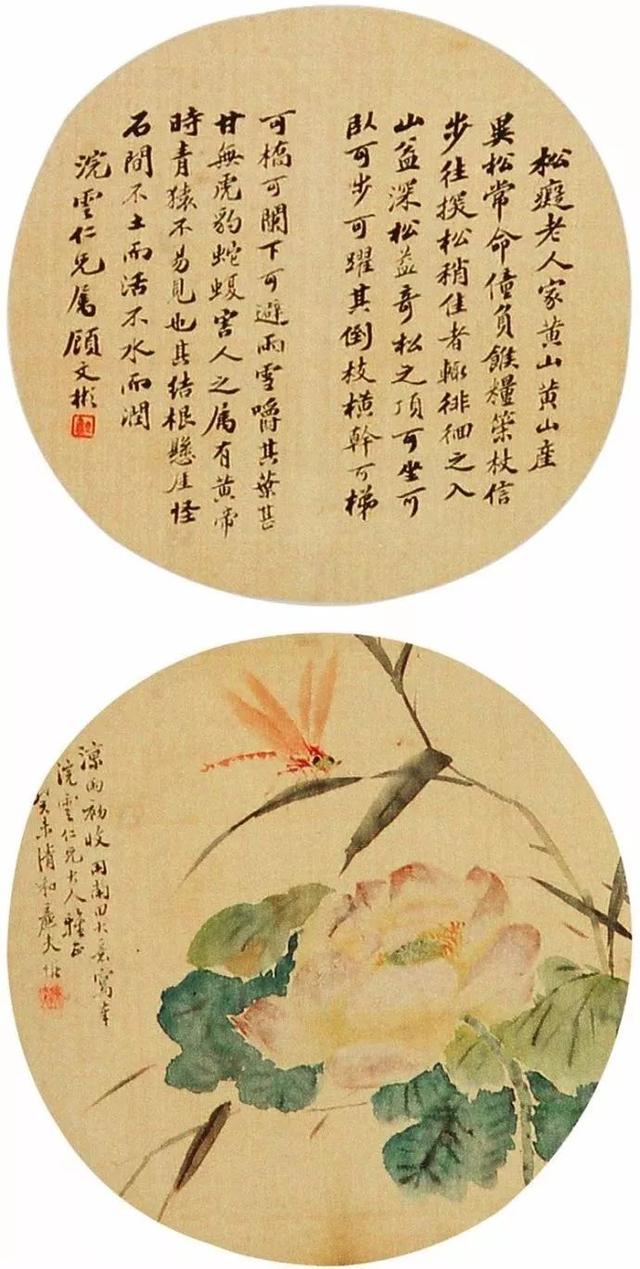 松癡老人家黄山黄山產
異松常命僮負餱糧策杖信
步往探松稍佳者輒徘徊之入
山益深松益奇松之頂可坐可
臥可步可躍其倒枝橫幹可梯
可橋可闌下可避雨雪嚼其葉甚
甘無虎豹蛇蝮害人之属有黄帝
時青猿不易見也其結根懸厓怪
石間不土而活不水而潤
浣雲仁兄属顧文彬
涼雨初收用南田大意寫奉
浣雲仁兄大人雅正
癸未清和廉夫恢